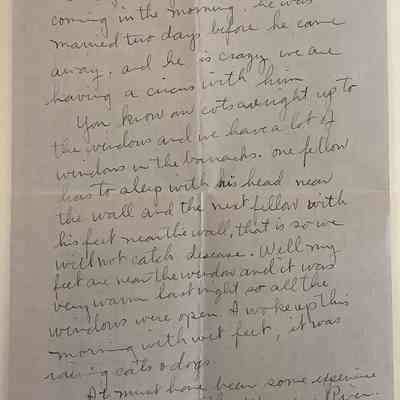 coming in the morning. he was
married two days before he came
away. and he is crazy we are
having a circus with him
You know our cots are right up to
the windows and we have a lot of
windows in the barracks. one fellow
has to sleep with his head near
the wall and the next fellow with
his feet near the wall, that is so we
will not catch disease. Well my
feet are near the window and it was
very warm last night so all the
windows were open. I woke up this
morning with wet feet, it was
raining cats & dogs.
It must have been some experience
River.